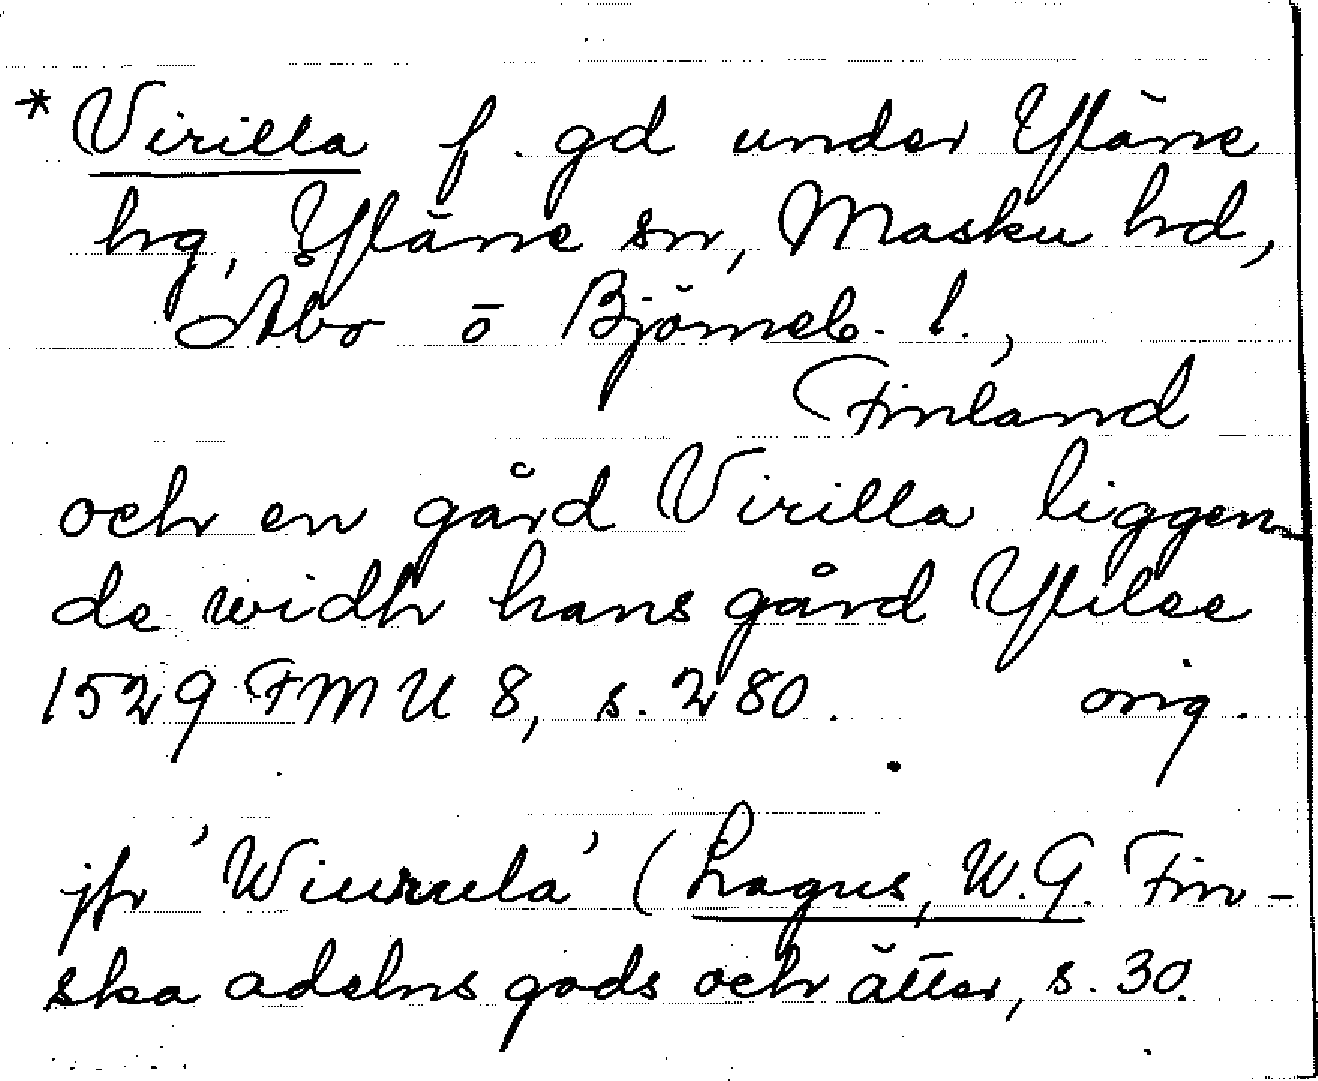 * Virilla f. gd under Yläne
hrg, Yläne sn, Masku hd,
Åbo o Björneb. l.,
Finland
och en gård Virilla liggen
de widh hans gård Ylilee
1529 FMU 8, s. 280. orig.
jfr 'Wiurula' (Lagus, W.G. Fin-
ska adelns gods och ätter, s. 30.